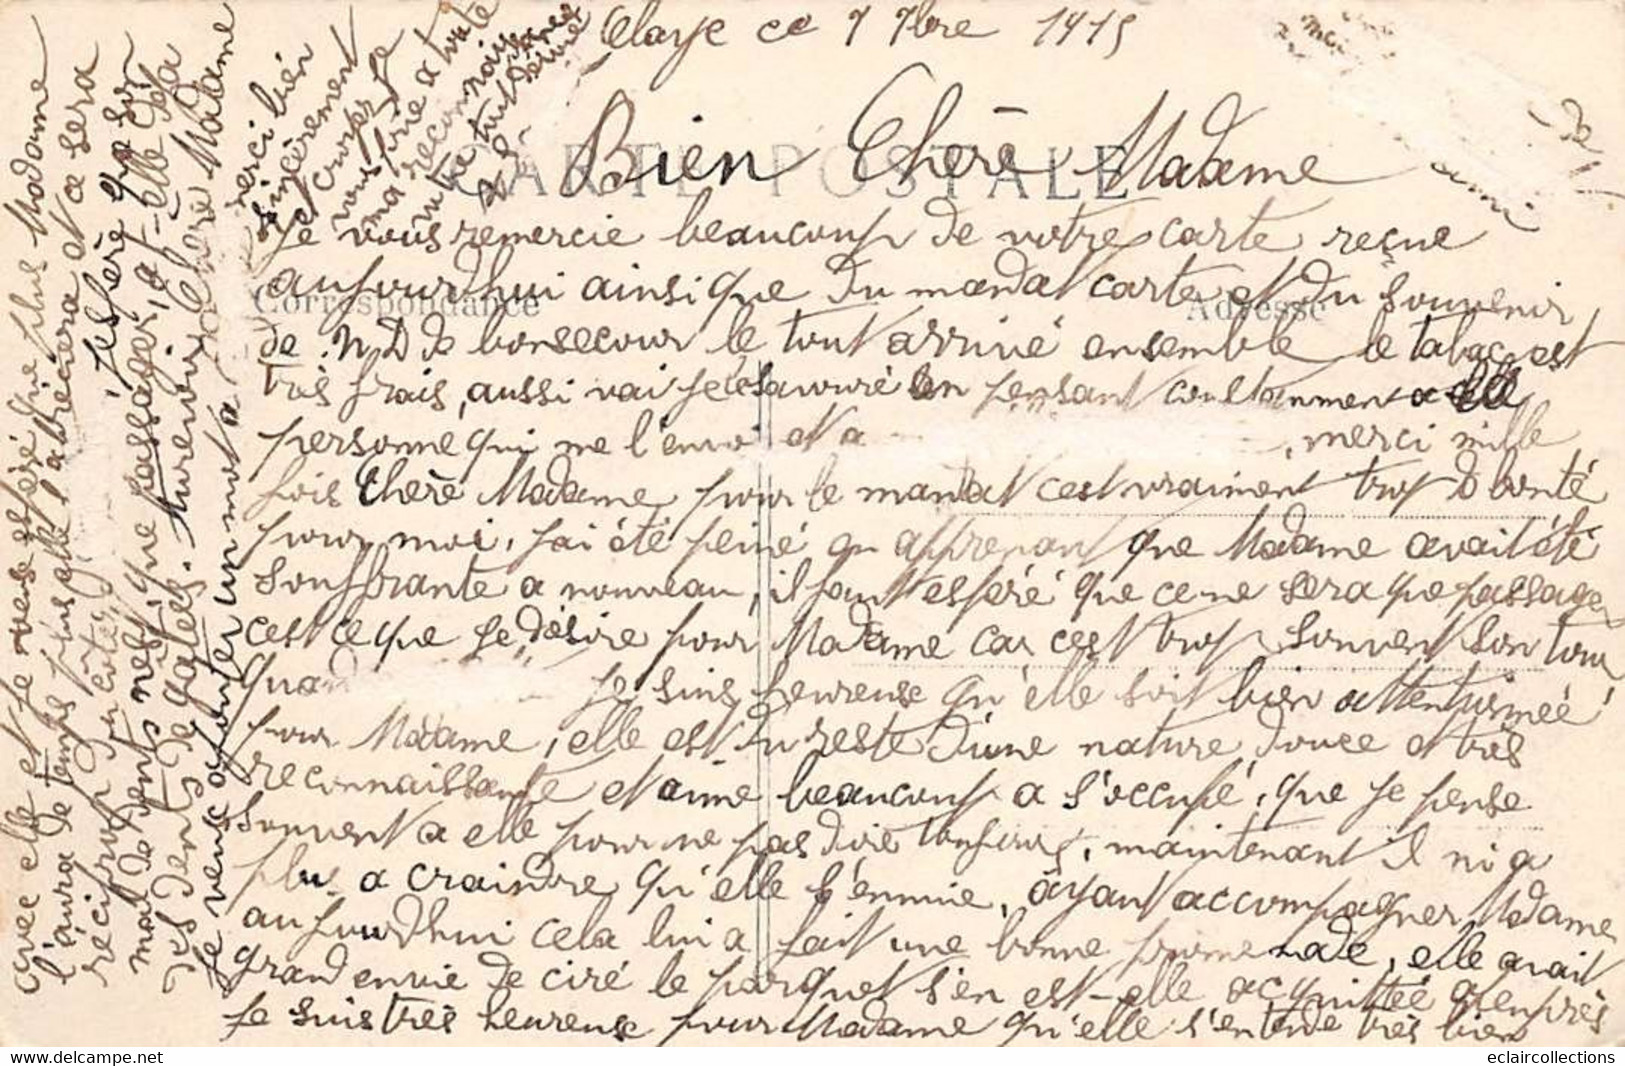 Claye ce 7 7bre 1915
CARTE POSTALE
Bien Chère Madame
Je vous remercie beaucoup de votre carte reçue
Correspondance
Adresse
aujourd'hui ainsi que du mandat carte et du souvenir
de N D de bonsecour le tout arrivé ensemble le tabac est
très frais, aussi vai je le savouré en pensant à elle
personne qui me l'envoi et a merci mille
fois Chère Madame pour le mandat c'est vraiment trop d bonté
pour moi, j'ai été peiné qu apprenant que Madame avait été
souffrante a nouveau, il faut espéré que ce ne sera que passager
c'est ce que je désire pour Madame car c'est trop souvent son tour
quand je suis heureuse qu'elle soit bien attentionnée
pour Madame, elle est du reste d'une nature douce et très
reconnaissante et aime beaucoup a s'occupé, que je pense
souvent a elle pour ne pas dire toujours, maintenant il ni a
plus a craindre qu'elle s'ennuie, ayant accompagner Madame
aujourd'hui cela lui a fait une bonne promenade, elle avait
grand envie de ciré le parquet s'en est-elle acquittée
je suis très heureuse pour Madame qu'elle s'entende très bien
avec elle et je veuse espéré que plus Madame
l'aura de temps plus elle l'apréciera et ce sera
réciproq du coter, j'espère que son
mal de dents n'est que passager, a-t-elle déja
des dents de gatées. Aurevoir Chère Madame
je veuse ajouter un mot a
merci bien
sincèrement
et croyez je
vous prie a toute
ma reconnais